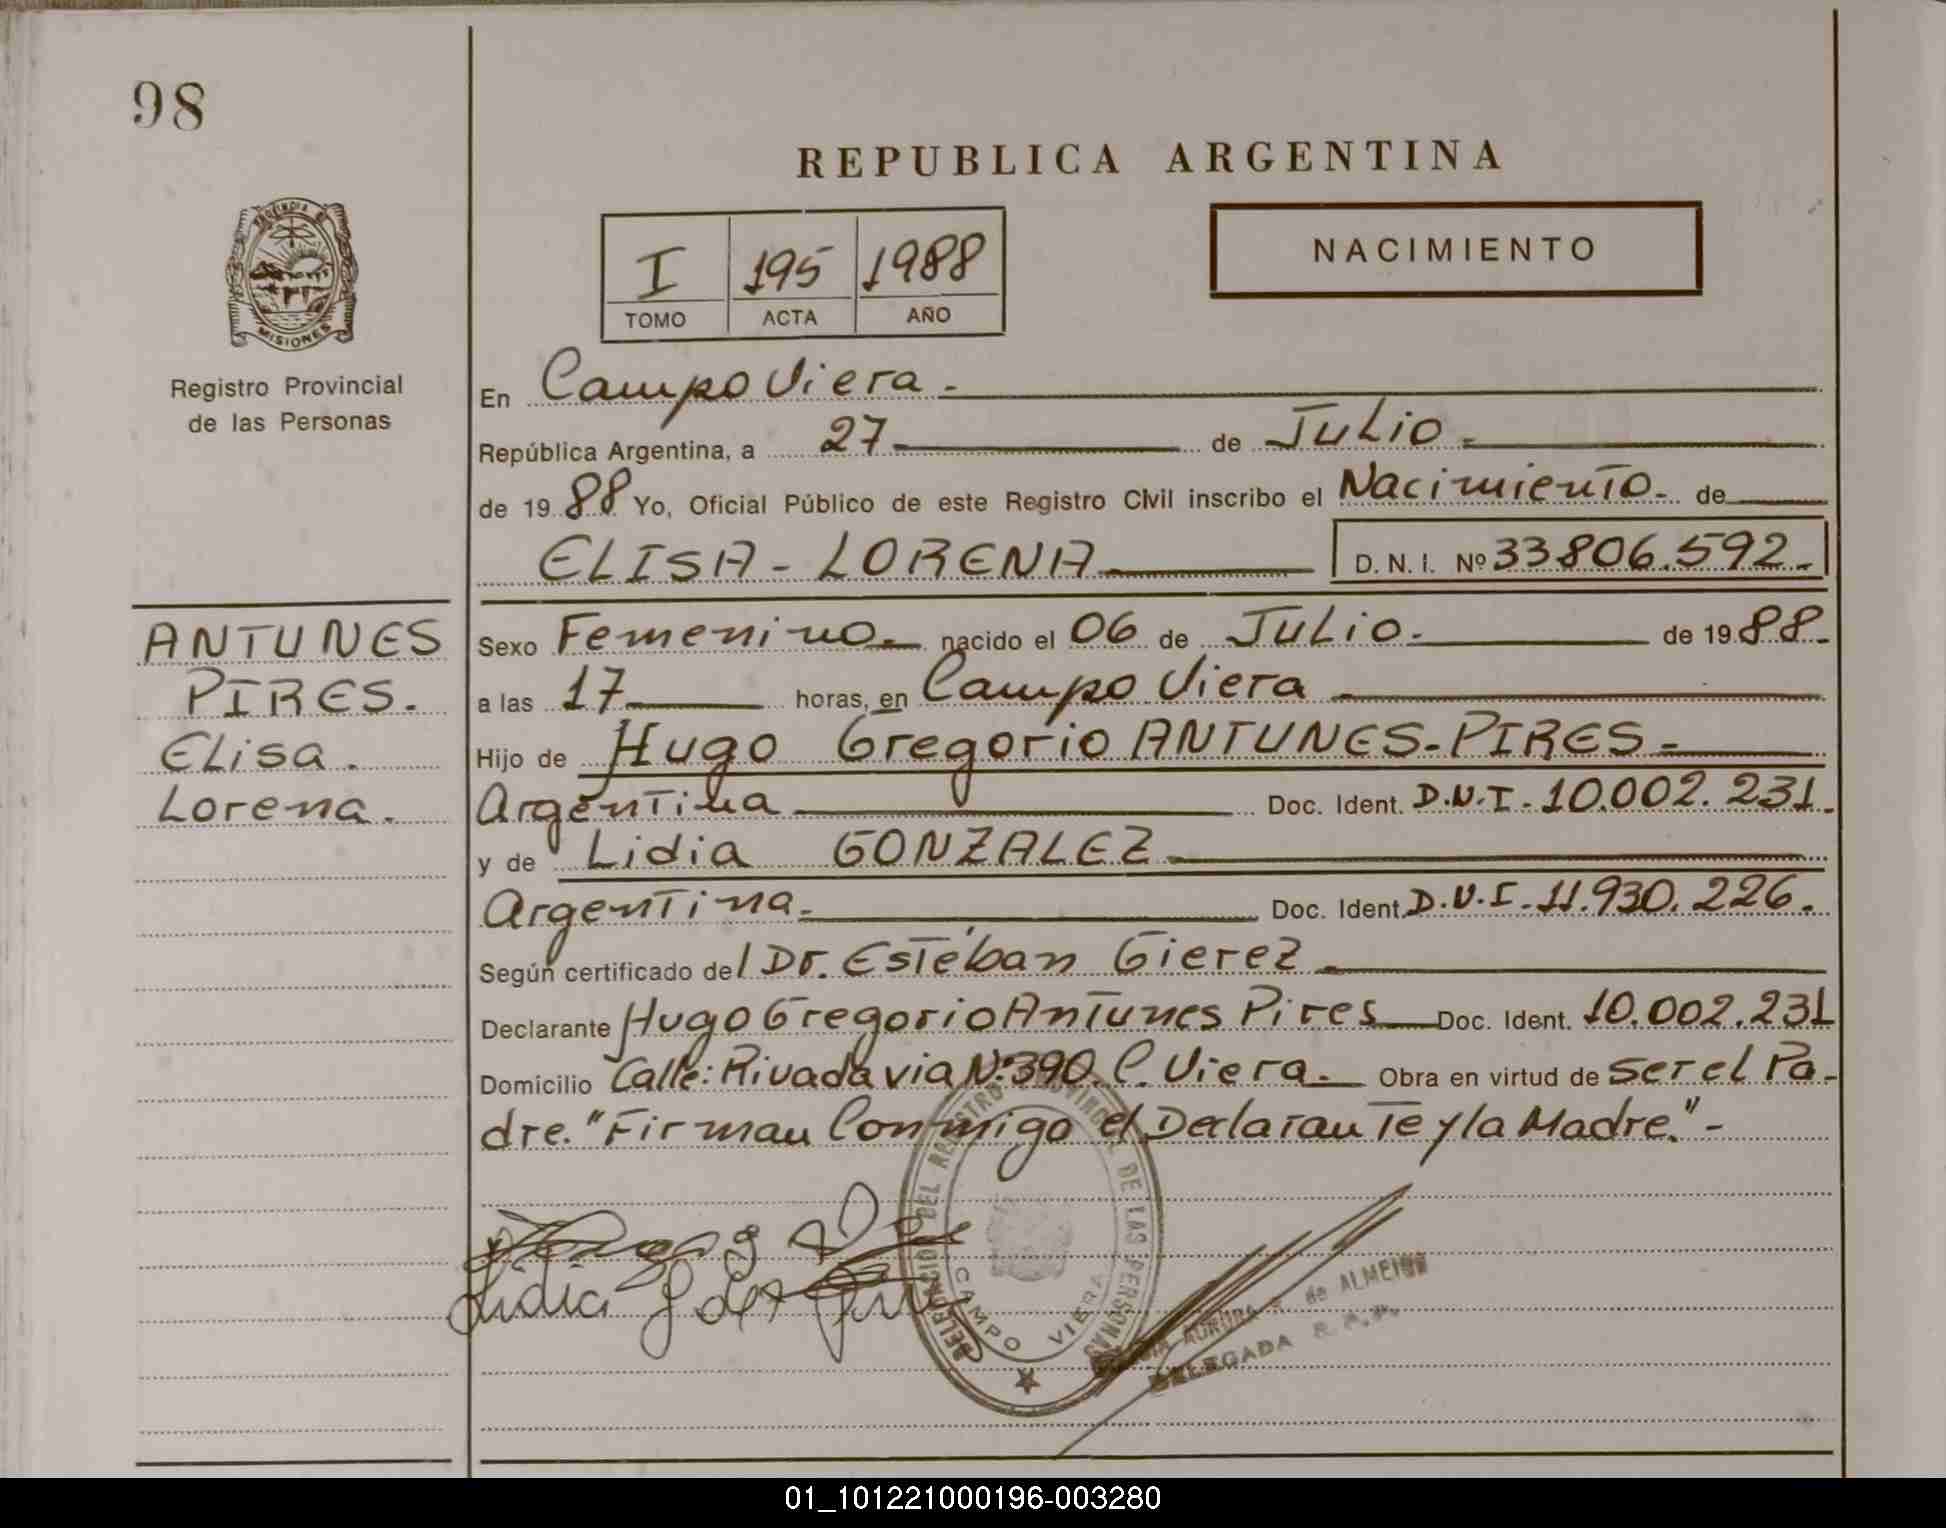 98
REPUBLICA ARGENTINA
NACIMIENTO
I 195 1988
TOMO ACTA AÑO
PROVINCIA DE
MISIONES
Registro Provincial
de las Personas
En Campo Viera.-
República Argentina, a 27 de Julio.-
de 1988 Yo, Oficial Público de este Registro Civil inscribo el Nacimiento.- de
ELISA - LORENA D. N. I. Nº 33806.592.-
ANTUNES
PIRES.
Elisa.
Lorena.
Sexo Femenino.- nacido el 06 de Julio.- de 1988.-
a las 17 horas, en Campo Viera
Hijo de Hugo Gregorio ANTUNES-PIRES-
Argentina Doc. Ident. D.N.I. 10.002.231.
y de Lidia GONZALEZ
Argentina.- Doc. Ident. D.N.I. 11.930.226.
Según certificado del Dr. Estéban Gierez.-
Declarante Hugo Gregorio Antunes Pires Doc. Ident. 10.002.231
Domicilio Calle: Rivadavia Nº 390. C. Viera.- Obra en virtud de ser el Pa-
dre. "Firman Conmigo el Declarante y la Madre."-
DELEGACION DEL REGISTRO PROVINCIAL DE LAS PERSONAS
CAMPO VIERA
Lidia
AURORA de ALMEIDA
DELEGADA R. P. P.
01_101221000196-003280